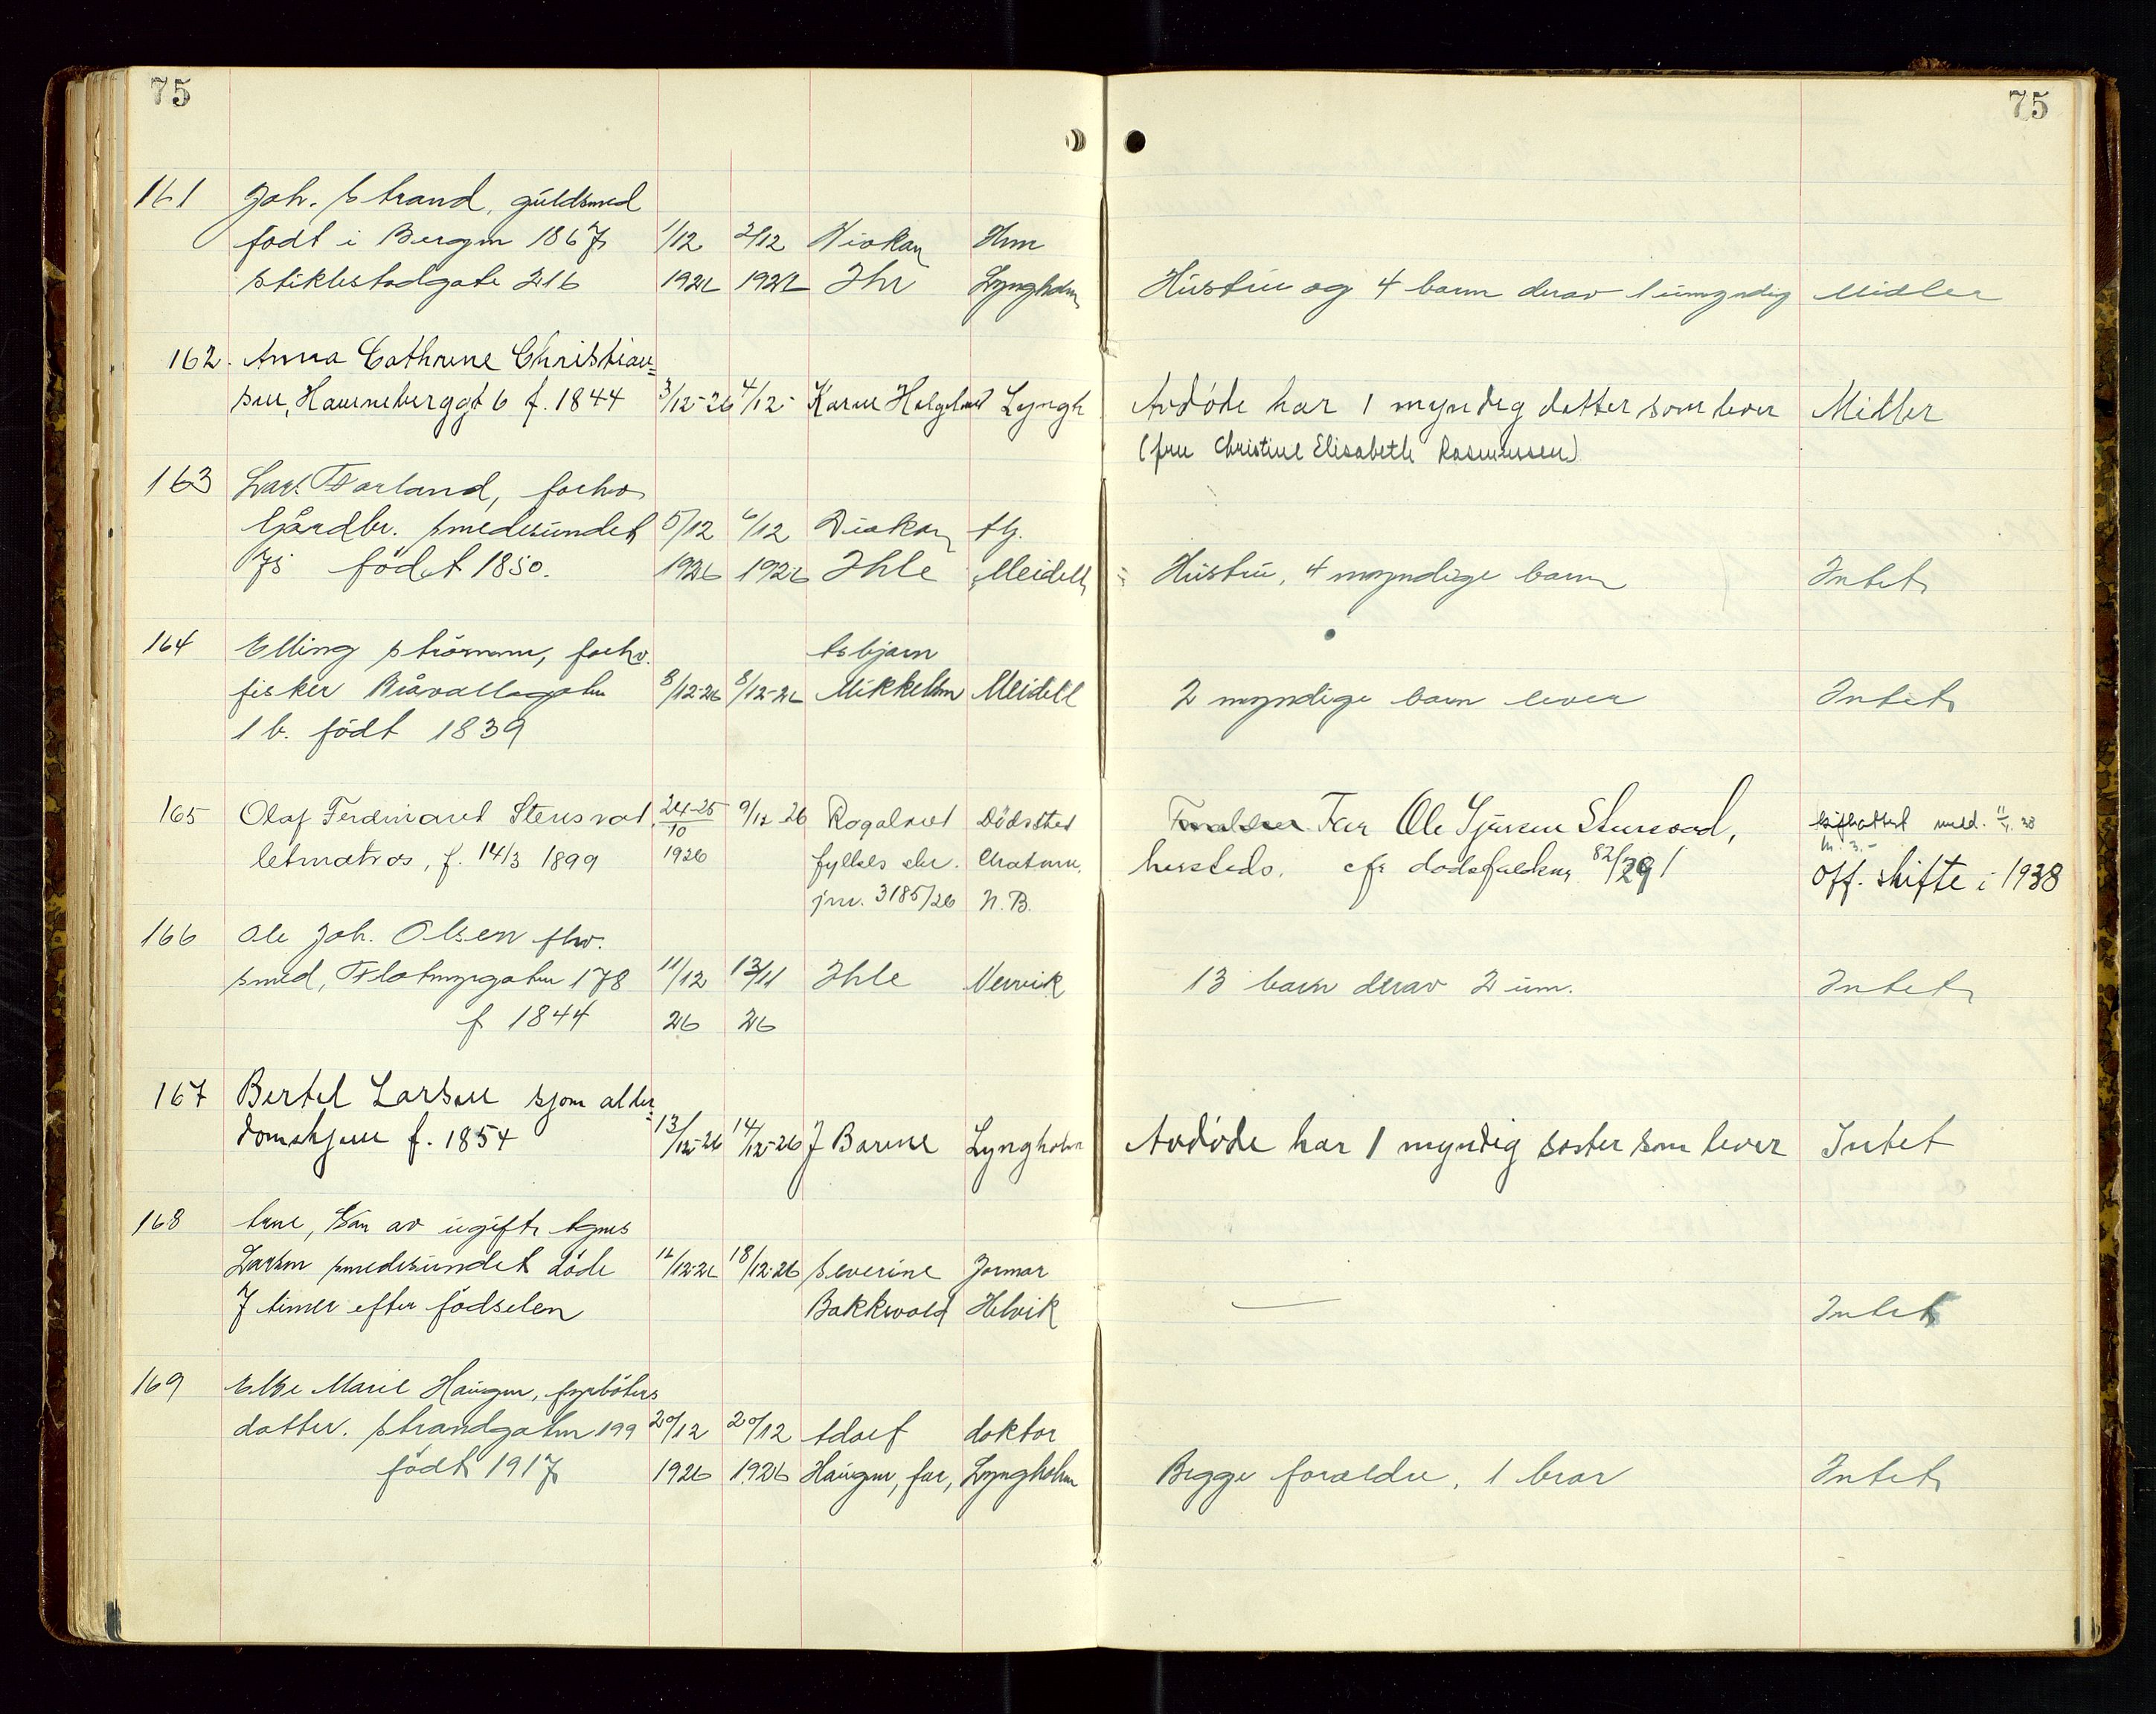 75
75
161 Joh. Strand, guldsmed
født i Bergen 1867 1/12 2/12 Diakon Hrm
Stiklestadgate 216 1926 1926 Ihle Lyngholm Hustru og 4 barn derav 1 umyndig Midler
162. Anna Cathrine Christian=
sen, Hauneberggt 6 f. 1844 3/12-26 4/12- Karen Helgeland Lyngh Avdøde har 1 myndig datter som lever Midler
(fru Christine Elisabeth Rasmussen)
163 Lars Førland, forhv
Gårdbr. Smedesundet 5/12 6/12 Diakon
75 født 1850. 1926 1926 Ihle Meidell Hustru, 4 myndige barn Intet
164 Elling Strømme, forhv. Asbjørn
fisker Bråvallagaten 8/12-26 8/12-26 Mikkelsen Meidell 2 myndige barn lever Intet
1 b. født 1839
165 Olaf Ferdinand Stensvad, 24-25/10 9/12 26 Rogaland Dødssted Far Ole Sjursen Stensvad, meld. 11/4. 38
letmatros, f. 14/3 1899 1926 fylkes skr. hersteds. cfr dødsfaldsnr 82/29 1 Off. skifte i 1938
jnr. 3185/26 N.B.
166 Ole Joh. Olsen fhv.
smed, Flotmyrgaten 178 11/12 13/11 Ihle Nervik 13 barn derav 2 um. Intet
f 1844 26 26
167 Bertel Larsen sjøm alder=
domshjem f. 1854 13/12-26 14/12-26 J Barene Lyngholm Avdøde har 1 myndig søster som lever Intet
168 Arne, søn av ugifte Agnes
Larsen Smedesundet døde 16/12-26 18/12-26 Severine Jormor
7 timer efter fødselen Bakkevold Helvik — Intet
169 Else Marie Haugen, fyrbøters
datter. Strandgaten 199 20/12 20/12 Adolf doktor
født 1917 1926 1926 Haugen, far, Lyngholm Begge forældre, 1 bror Intet